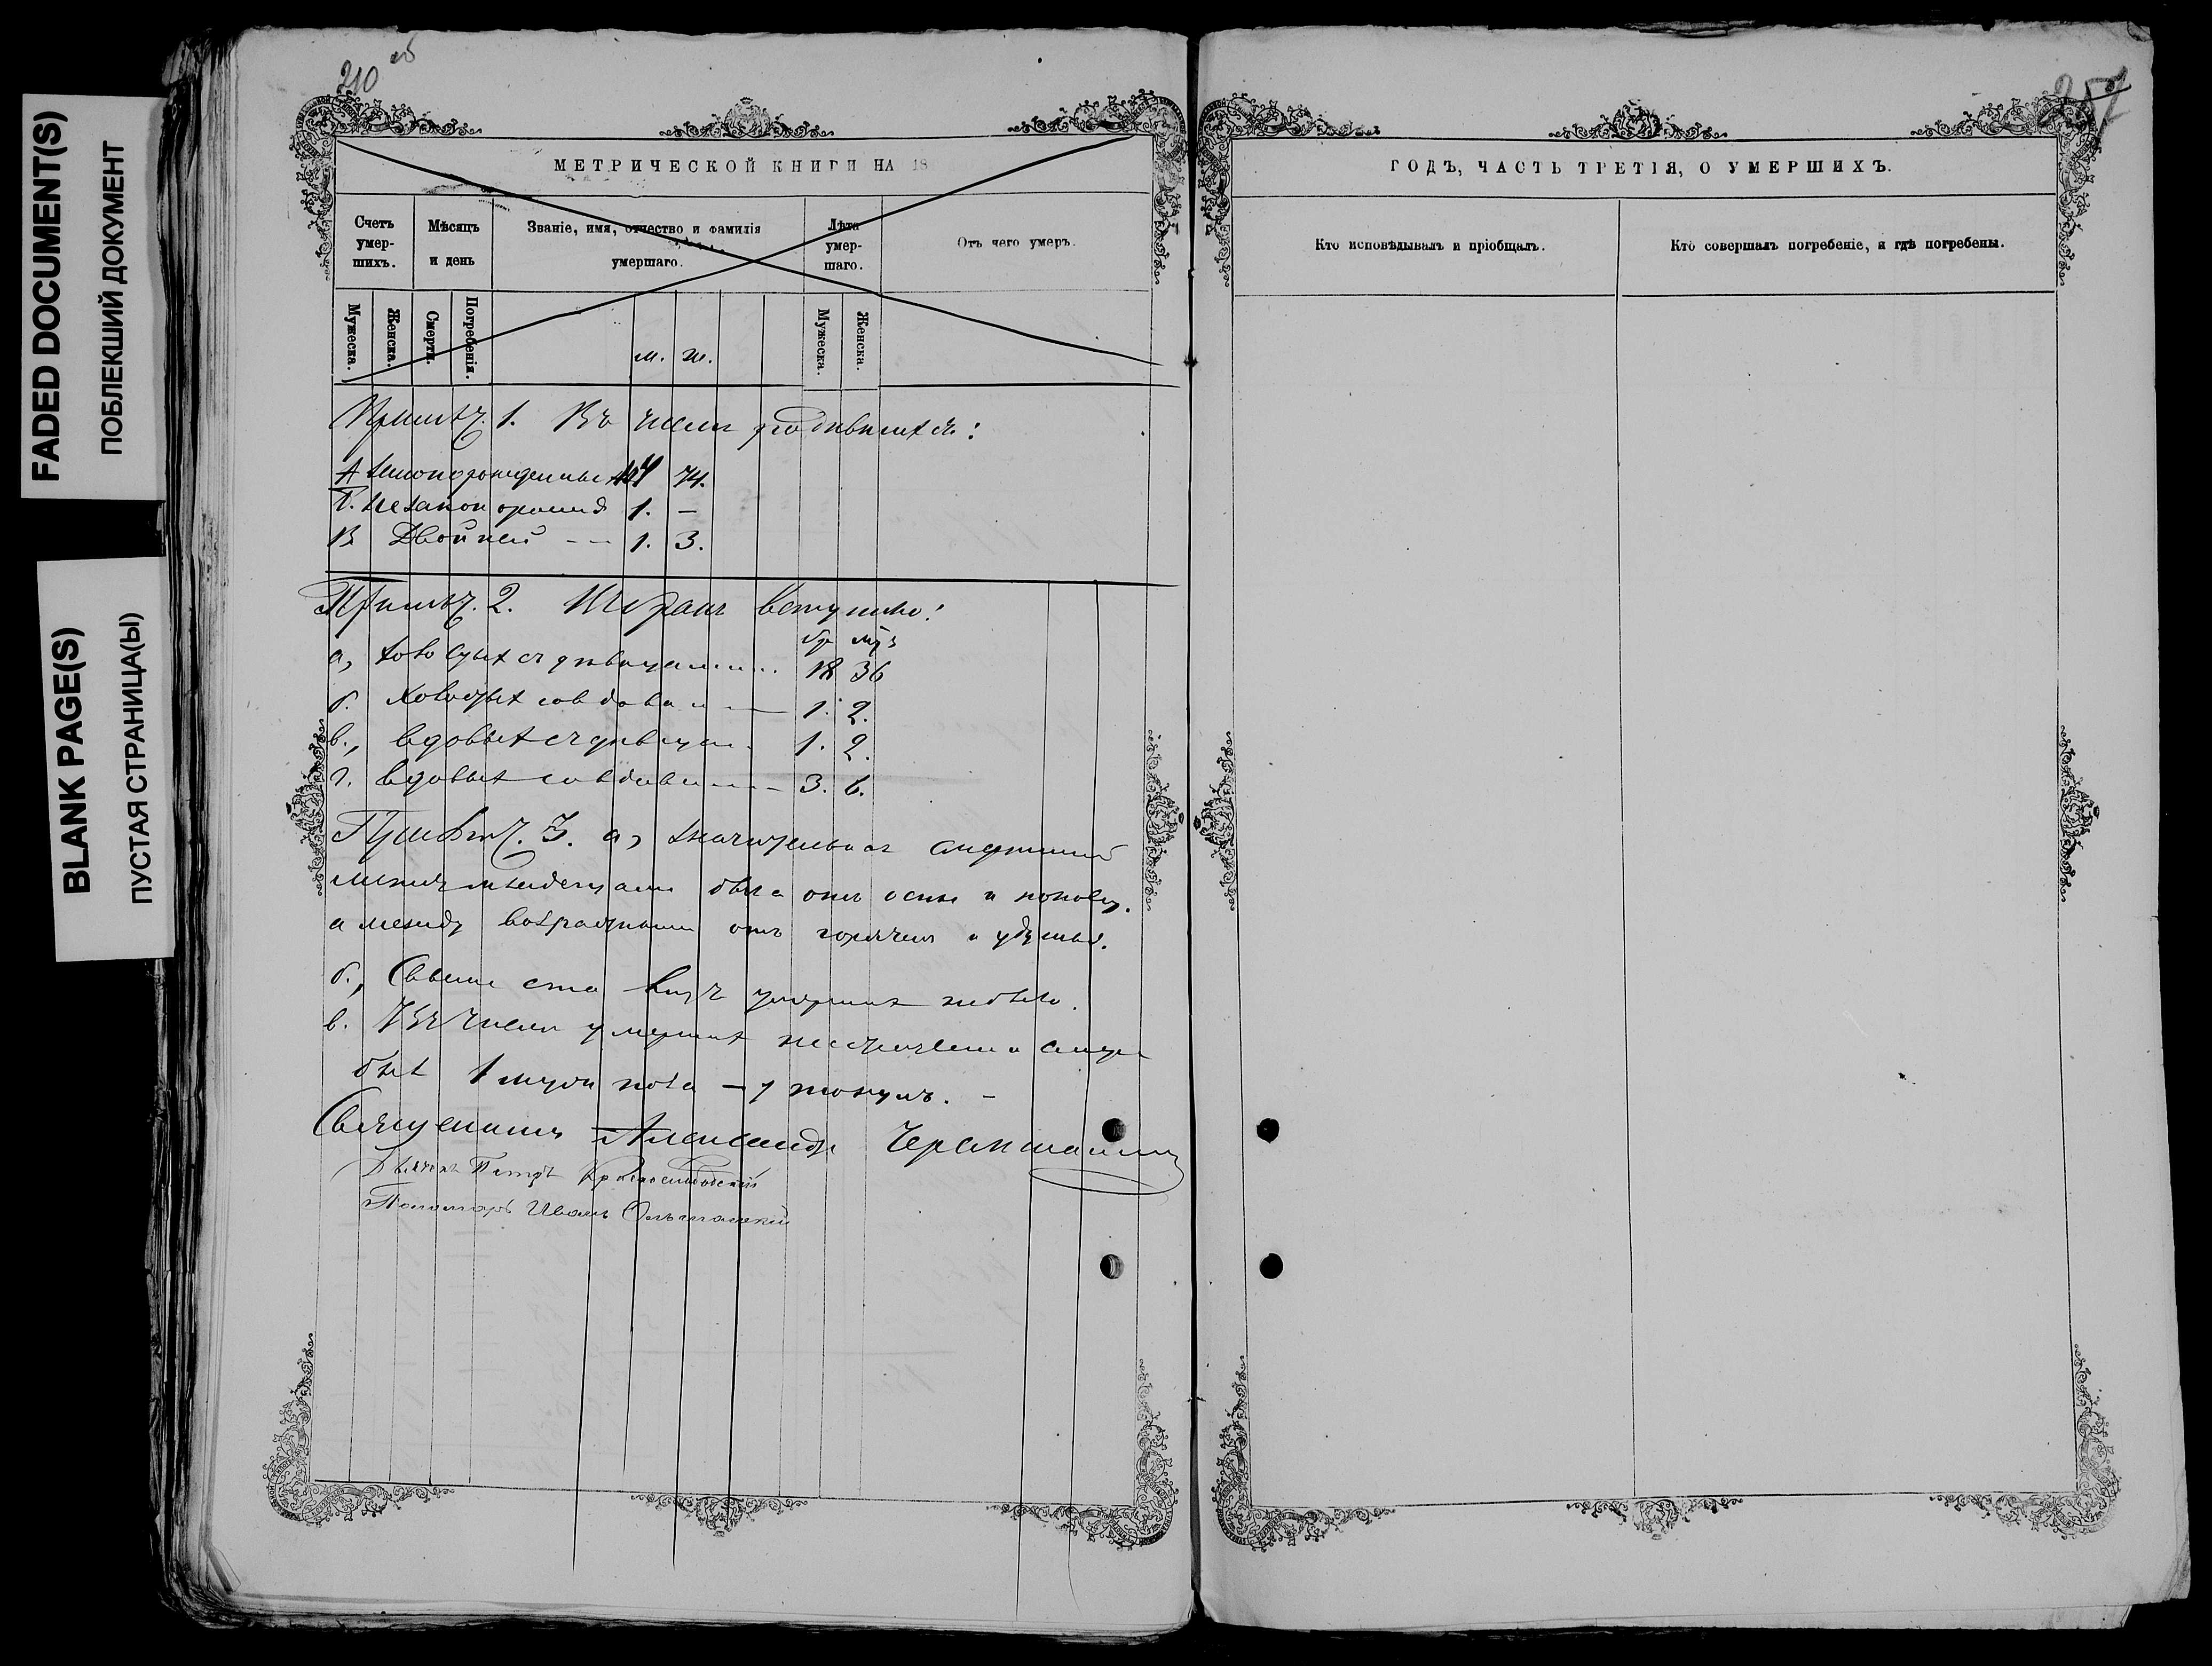 FADED DOCUMENT(S)
ПОБЛЕКШИЙ ДОКУМЕНТ
BLANK PAGE(S)
ПУСТАЯ СТРАНИЦА(Ы)
210 об
МЕТРИЧЕСКОЙ КНИГИ НА 18
Счетъ умер-шихъ.
Мѣсяцъ и день
Званіе, имя, отчество и фамилія умершаго.
Лѣта умер-шаго.
Отъ чего умеръ.
Мужеска.
Женска.
Смерти.
Погребенія.
м. ж.
Мужеска.
Женска.
Примѣч. 1. Въ числѣ родившихся:
А законорожденных 74.
Б. незаконорожд 1. –
В Двойней – – 1. 3.
Примѣч. 2. Въ бракъ вступило:
бр муз
а, холостых съ дѣвицами 18 36
б. холостых со вдовами 1. 2.
в., вдовых съ дѣвицам. 1. 2.
г. вдовых со вдовами 3. 6.
Примѣч. 3. а, значительная смертность
между младенцами была отъ оспы и
а между возрастными отъ горячки и удушья.
б., Свыше ста лѣтъ умерших небыло.
в. Въ числѣ умерших несчастною смерт
был 1 муж пола – утонулъ. –
Священникъ Александръ
Дьячекъ Петръ Краснослободскій
Пономарь Иванъ Ольшанскій
257
ГОДЪ, ЧАСТЬ ТРЕТІЯ, О УМЕРШИХЪ.
Кто исповѣдывалъ и пріобщалъ.
Кто совершалъ погребеніе, и гдѣ погребены.